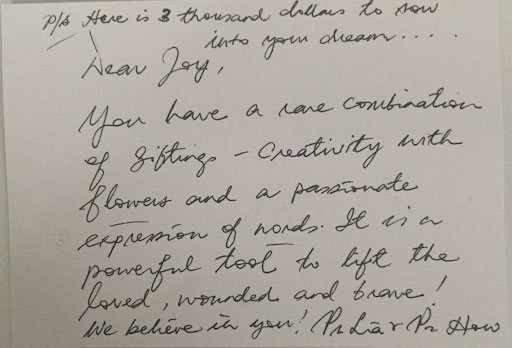 p/s Here is 3 thousand dollars to sow
into your dream....
Dear Joy,
You have a rare combination
of giftings - Creativity with
flowers and a passionate
expression of words. It is a
powerful tool to lift the
loved, wounded and brave!
We believe in you! Ps Lia & Ps How